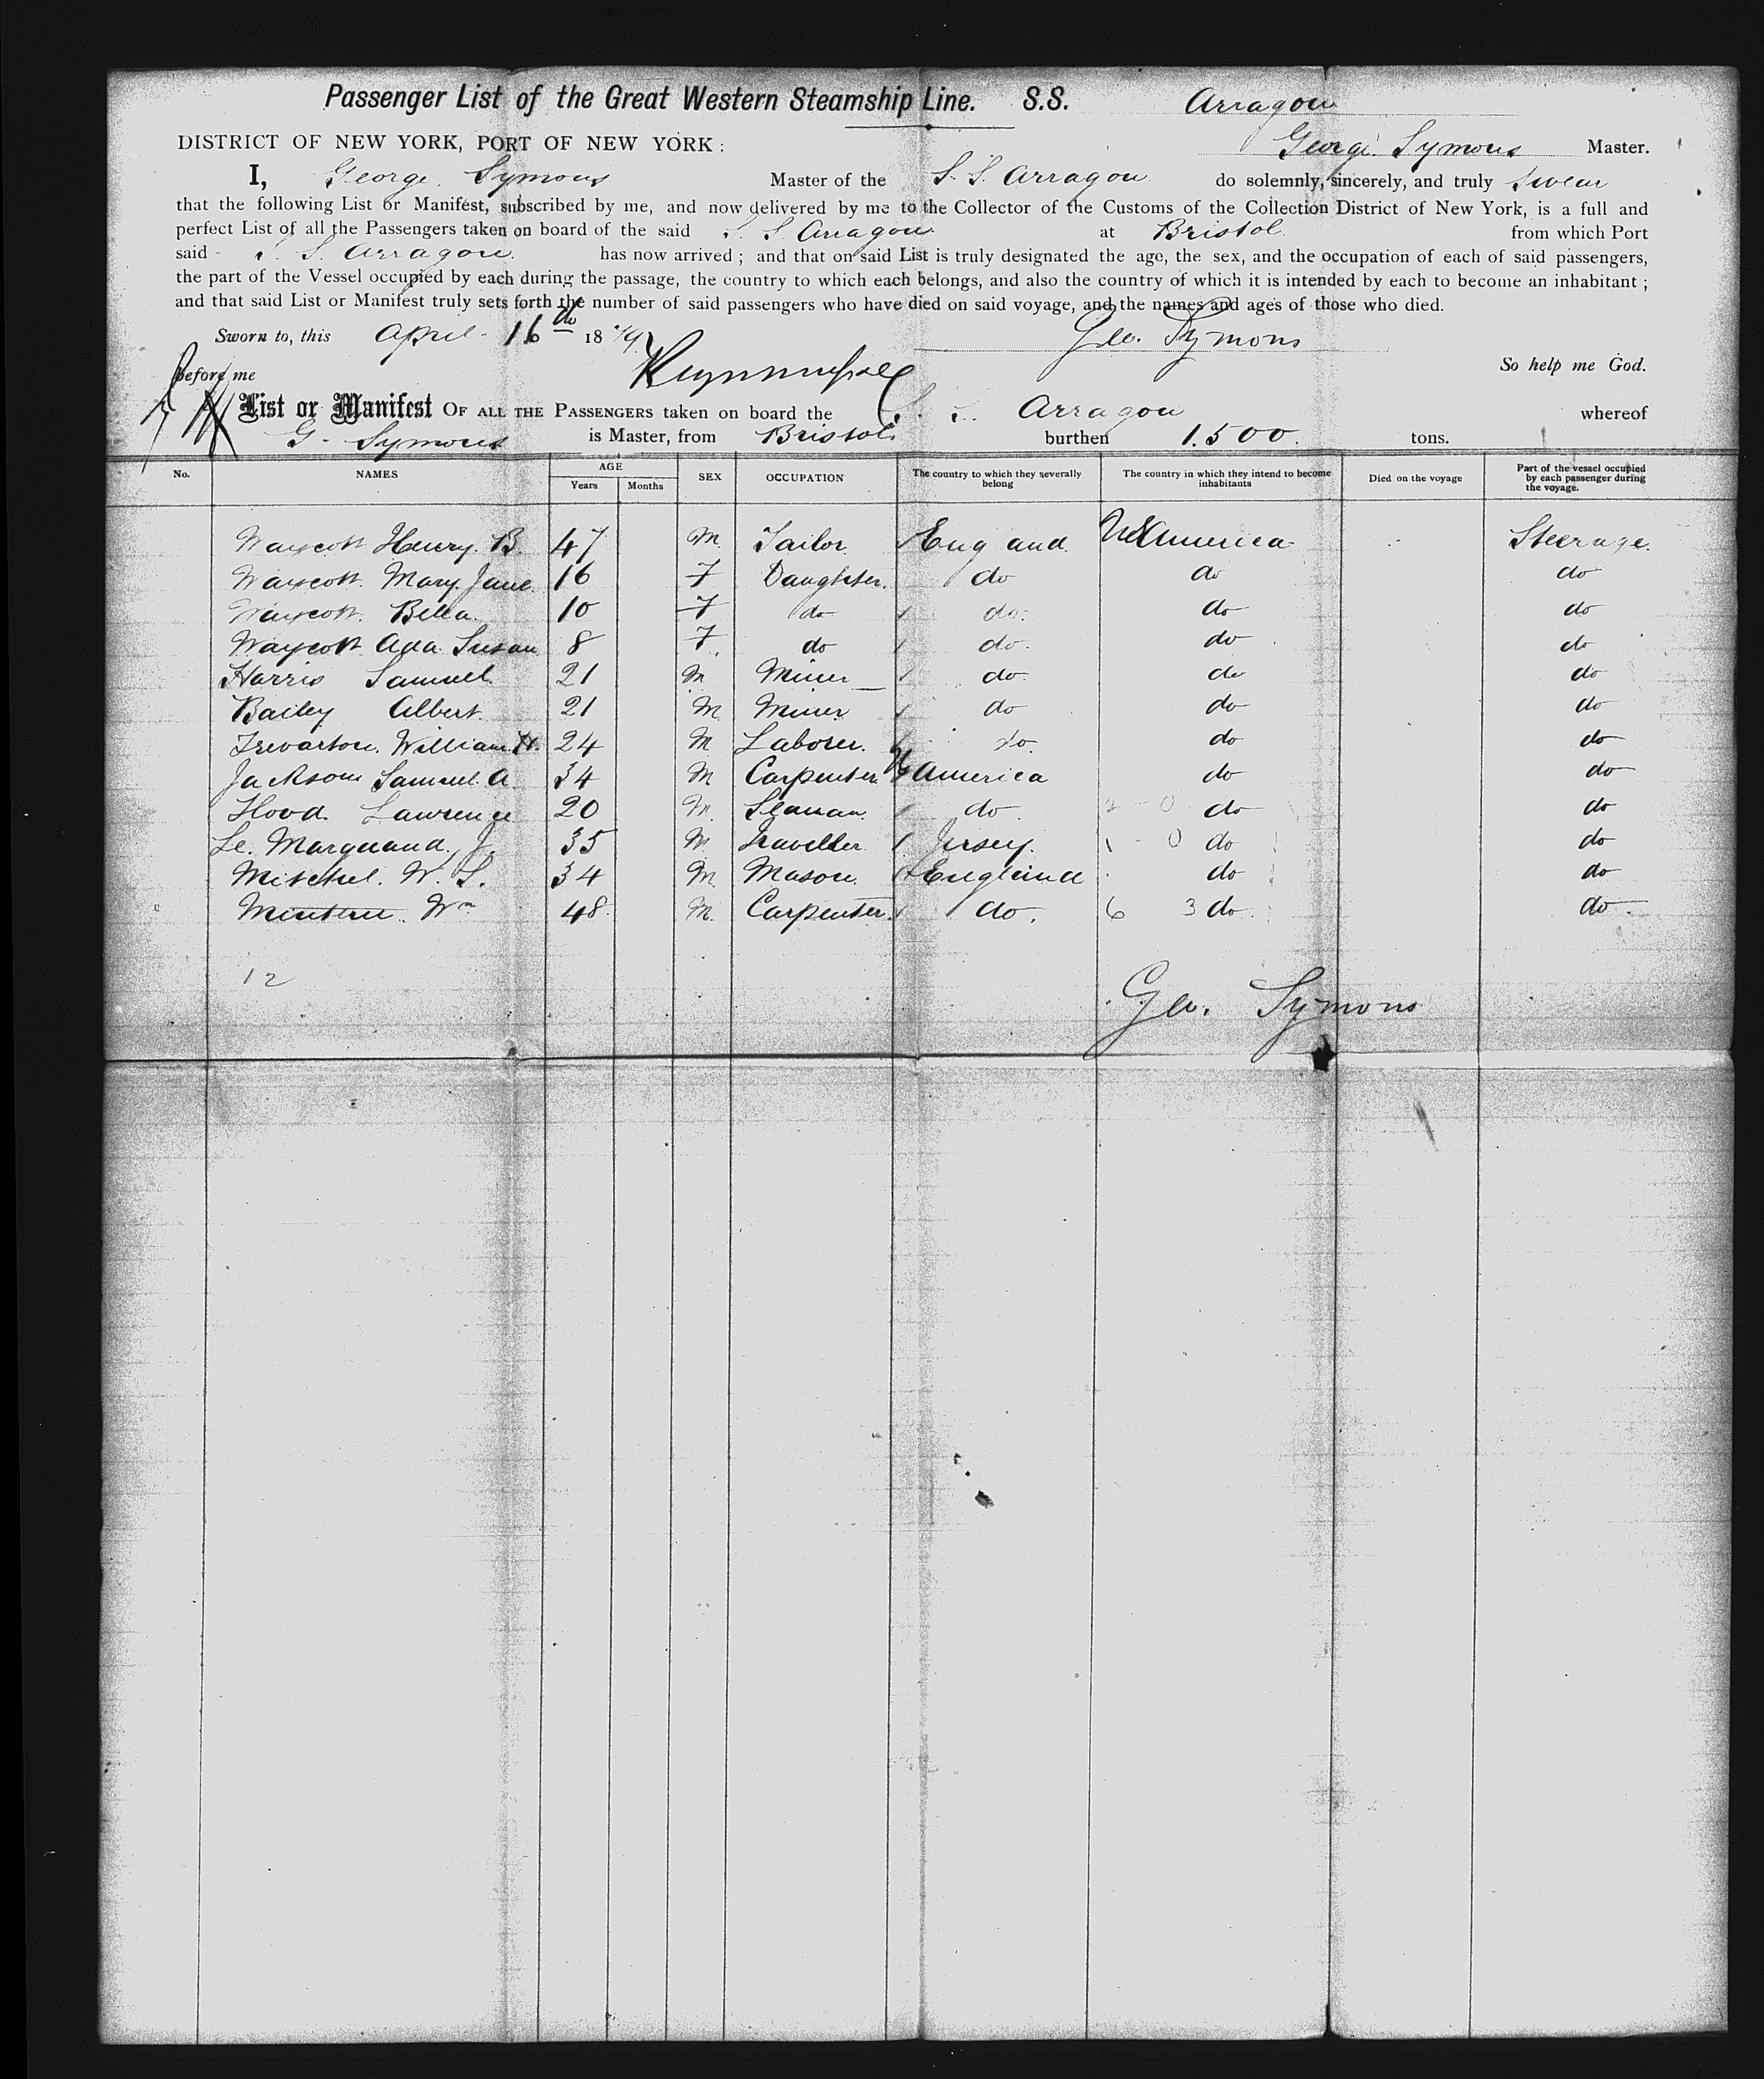 Passenger List of the Great Western Steamship Line. S.S. Arragon
DISTRICT OF NEW YORK, PORT OF NEW YORK : George Symons Master.
I, George Symons Master of the S. S. Arragon do solemnly, sincerely, and truly swear
that the following List or Manifest, subscribed by me, and now delivered by me to the Collector of the Customs of the Collection District of New York, is a full and
perfect List of all the Passengers taken on board of the said S. S. Arragon at Bristol from which Port
said S. S. Arragon. has now arrived ; and that on said List is truly designated the age, the sex, and the occupation of each of said passengers,
the part of the Vessel occupied by each during the passage, the country to which each belongs, and also the country of which it is intended by each to become an inhabitant ;
and that said List or Manifest truly sets forth the number of said passengers who have died on said voyage, and the names and ages of those who died.
Sworn to, this April 16th 1879 Geo. Symons
before me So help me God.
List or Manifest OF ALL THE PASSENGERS taken on board the S. S. Arragon whereof
G. Symons is Master, from Bristol burthen 1.500. tons.
No. NAMES AGE Years Months SEX OCCUPATION The country to which they severally belong The country in which they intend to become inhabitants Died on the voyage Part of the vessel occupied by each passenger during the voyage.
Waycott Henry. B. 47 M. Tailor. England. America Steerage.
Waycott. Mary. Jane. 16 F Daughter. do do do
Waycott. Bella. 10 F do do. do do
Waycott. Ada. Susan 8 F. do do. do do
Harris Samuel. 21 M Miner do. do do
Bailey Albert. 21 M Miner do do do
Trevarton. William. H. 24 M Laborer. do. do do
Jackson Samuel. A. 34 M Carpenter America do do
Hood. Lawrence 20 M. Seaman. do. 2 - 0 do do
Le. Marquand. J. 35 M Traveller. Jersey. 1 - 0 do do
Mitchel. W. S. 34 M. Mason. England do do
Wm 48. M. Carpenter. do. 6 3 do. do.
12
Geo. Symons